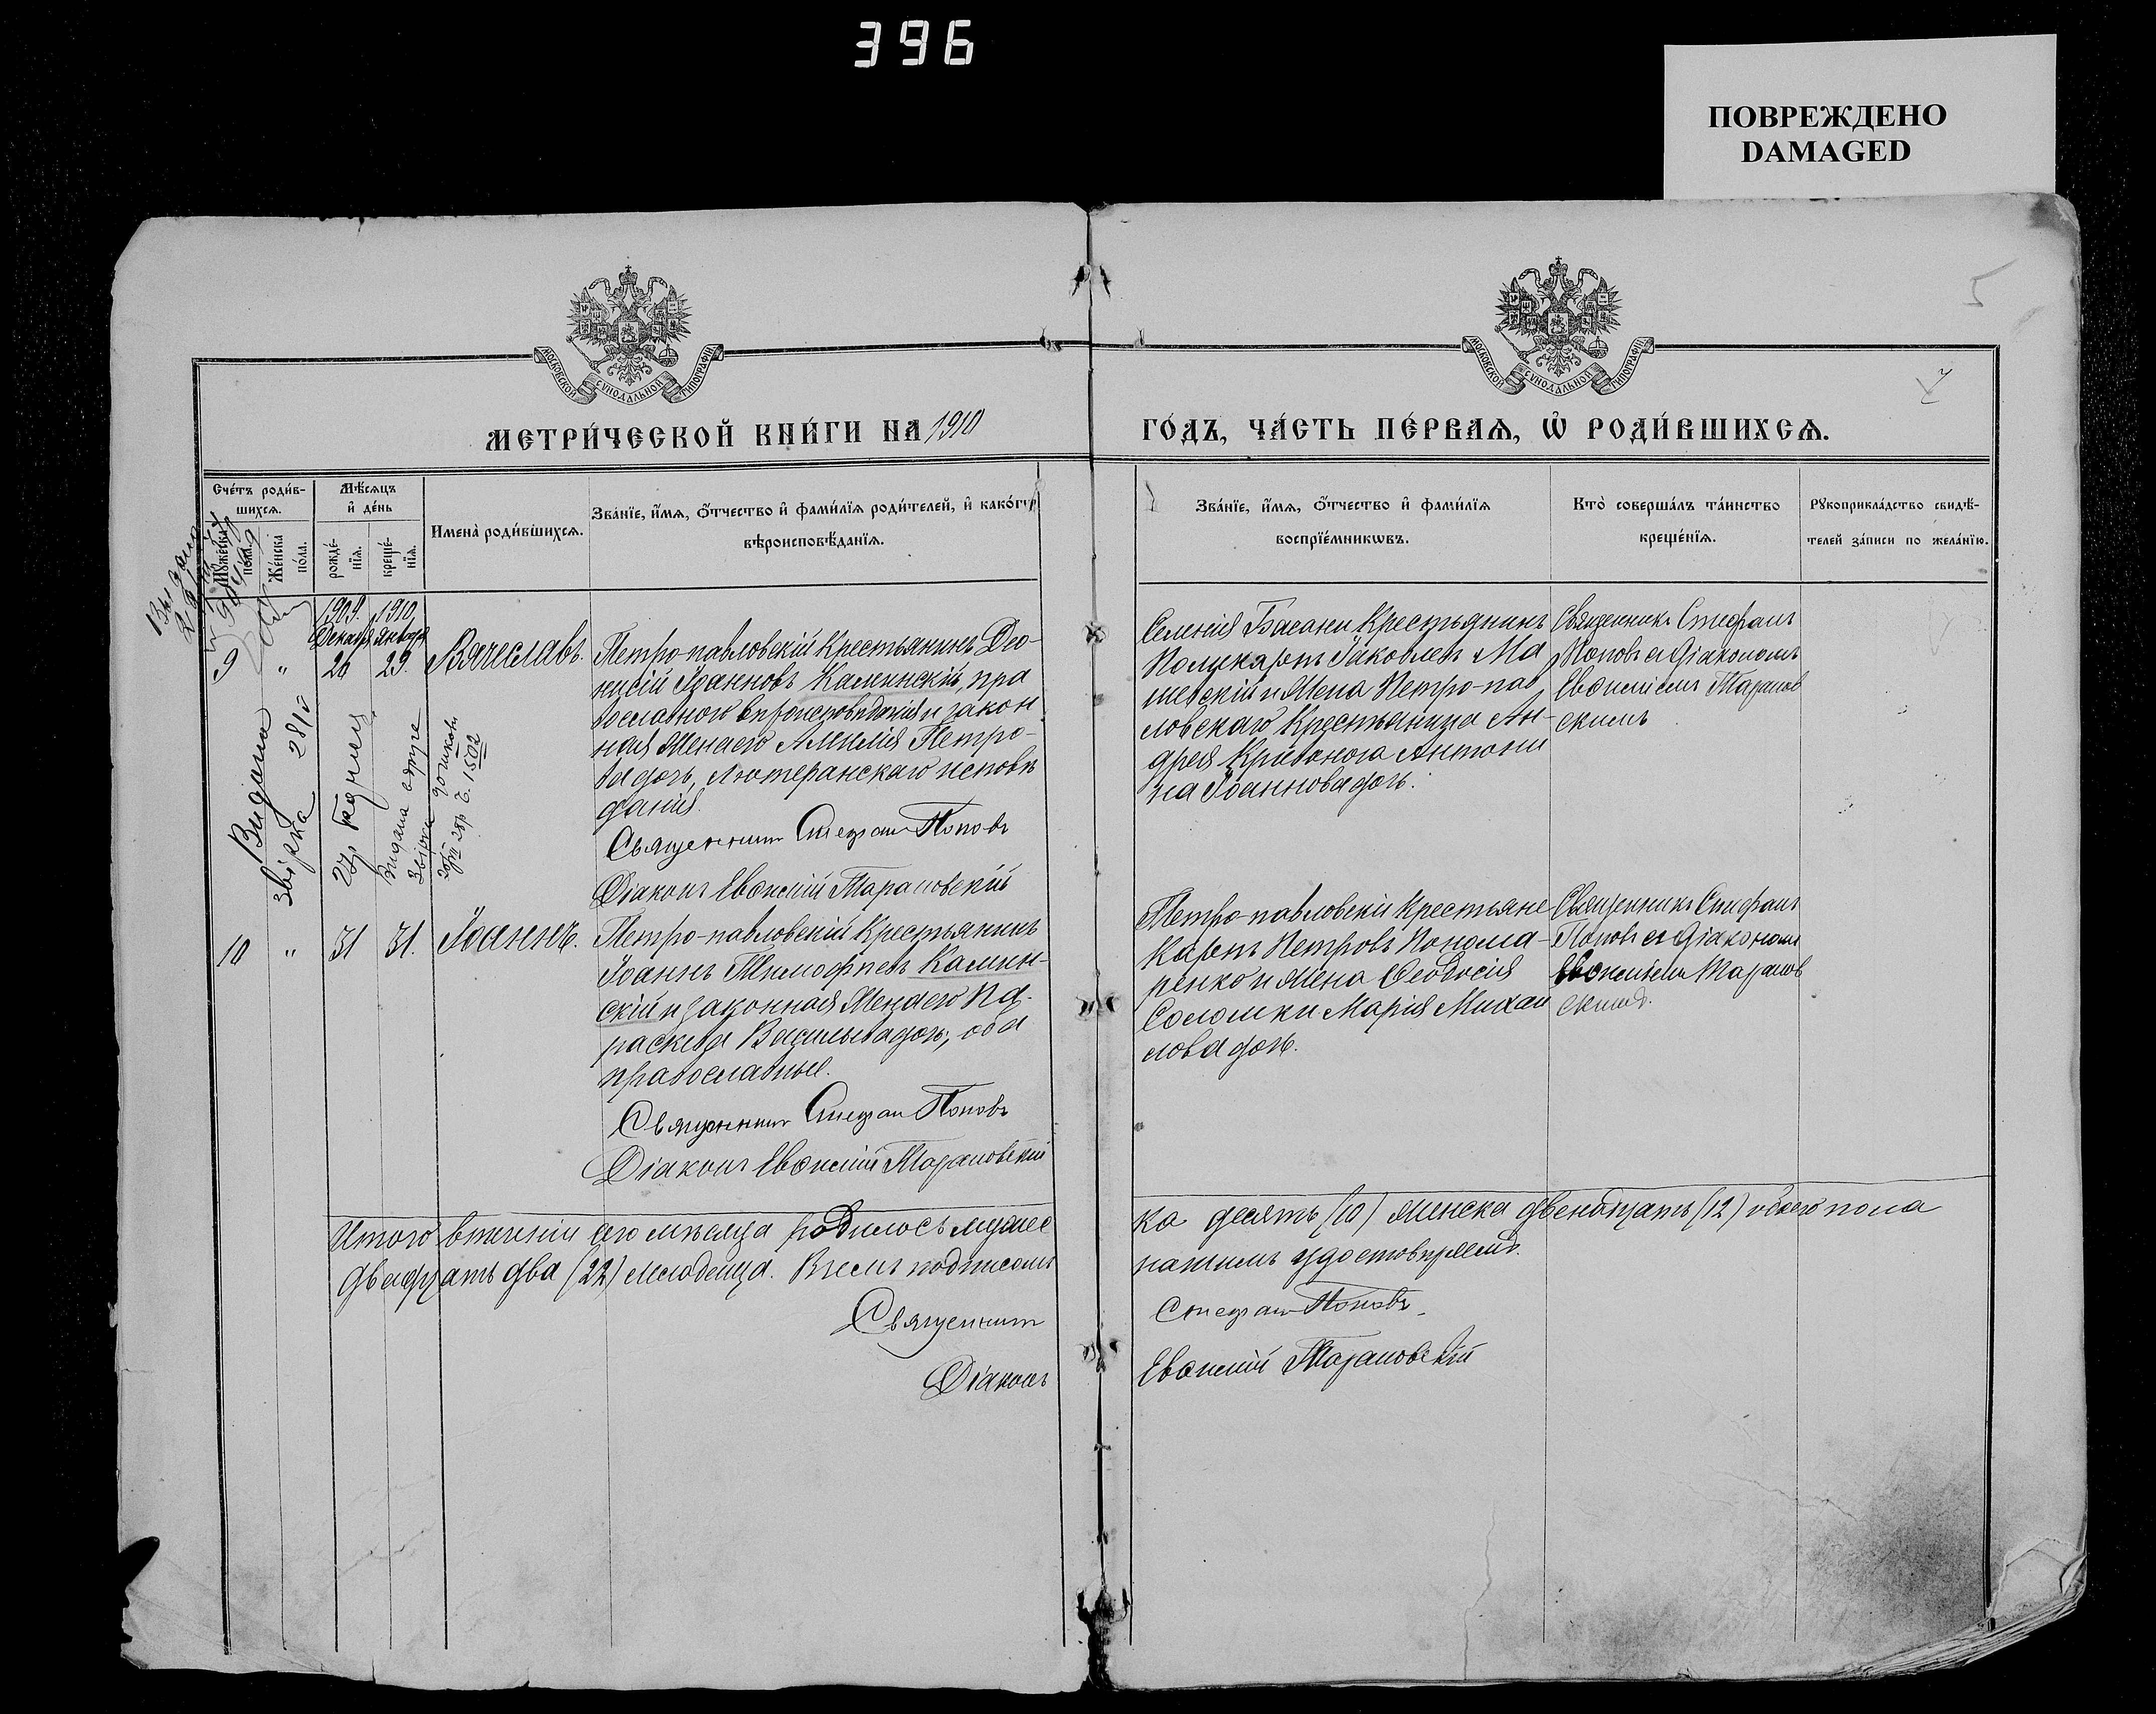 396
ПОВРЕЖДЕНО
DAMAGED
5
МОСКОВСКОЙ СѴНОДАЛЬНОЙ ТИПОГРАФІИ
МОСКОВСКОЙ СѴНОДАЛЬНОЙ ТИПОГРАФІИ
МЕТРИ́ЧЕСКОЙ КНИ́ГИ НА 1910
ГО́ДЪ, ЧА́СТЬ ПЕ́РВАѦ, Ѡ҆ РОДИ́ВШИХСѦ.
Сче́тъ роди́в-
шихсѧ.
Мꙋ́жеска
по́ла.
Же́нска
по́ла.
Мѣ́сѧцъ
и҆ де́нь
рожде́-
нїѧ.
креще́-
нїѧ.
Имена̀ роди́вшихсѧ.
Зва́нїе, и҆́мѧ, ѻ҆́тчество и҆ фами́лїѧ роди́телей, и҆ како́гѡ
вѣроисповѣ́данїѧ.
Зва́нїе, и҆́мѧ, ѻ҆́тчество и҆ фами́лїѧ
воспрїе́мникѡвъ.
Кто̀ соверша́лъ та́инство
креще́нїѧ.
Рꙋкоприкла́дство свидѣ́-
телей за́писи по жела́нїю.
1909. 1910
Декабря Января
9 " 26 29. Вячеславъ.
Петро-павловскій Крестьянинъ Део-
нисій Іоанновъ Каминскій, пра
вославного вѣроисповѣданія и закон
ная Жена его Амилія Петро-
ва дочь, Лютеранскаго исповѣ
данія.
Священникъ Стефанъ Поповъ
Діаконъ Евѳимій Тарановскій
Селенія Басани Крестьянинъ
Поликарпъ Іаковлевъ Ма
шевскій и Жена Петро-пав
ловскаго Крестьянина Ан-
дрея Кривоноса Антони
на Іоаннова дочь.
Священникъ Стефанъ
Поповъ съ Діакономъ
Евѳиміемъ Таранов
скимъ
Видана
звірка 281
Видана
звірка
1502
10 " 31 31. Іоаннъ.
Петро-павловскій Крестьянинъ
Іоаннъ Тимофеевъ Камин-
скій и законная Жена его Па-
раскева Васильева дочь, оба
православные.
Священникъ Стефанъ Поповъ
Діаконъ Евѳимій Тарановскій
Петро-павловскіи Крестьяне
Карпъ Петровъ Понома-
ренко и Жена Ѳеодосія
Соломки Марія Михаи
лова дочь.
Священникъ Стефанъ
Поповъ съ Діакономъ
Евѳиміемъ Таранов
скимъ.
Итого втеченіи сего мѣсяца родилось мужес
ка десять (10) женска двенадцать (12) обоего пола
двадцать два (22) младенца. Въ чемъ подписомъ
нашимъ удостовѣряемъ.
Священникъ Стефанъ Поповъ
Діаконъ Евѳимій Тарановскій